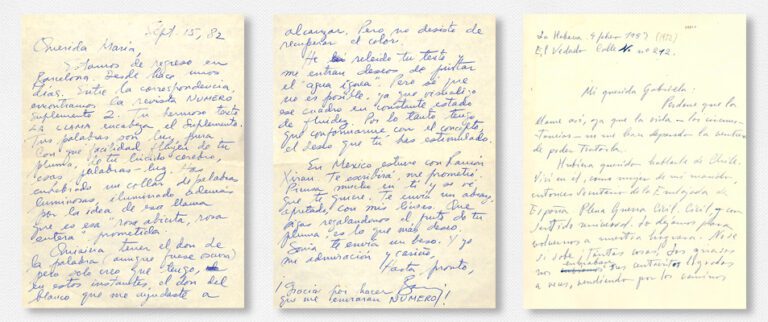 Sept. 15, 82
Querida María,
Estamos de regreso en
Barcelona. Desde hace unos
días. Entre la correspondencia,
encontramos la revista NUMERO
Suplemento 2. Tu hermoso texto
LA LLAMA encabeza el Suplemento.
Tus palabras son luz pura.
Con qué facilidad fluyen de tu
pluma, de tu lúcido cerebro,
esas palabras-luz. Has
enhebrado un collar de palabras
luminosas, iluminado además
por la idea de esa llama
que es esa "rosa abierta, rosa
entera prometida.
Quisiera tener el don de
la palabra (aunque fuese oscura)
pero solo creo que tengo,
en estos instantes, el don del
blanco que me ayudaste a
alcanzar. Pero no desisto de
recuperar el color.
He releido tu texto y
me entran deseos de pintar
el "agua ígnea". Pero sé que
no es posible, ya que visualizo
ese cuadro en constante estado
de fluidez. Por lo tanto tengo
que conformarme con el concepto,
el deseo que tú has estimulado.
En Mexico estuve con Ramón
Xirau. Te escribirá, me prometió.
Piensa mucho en ti y se ve
que te quiere. Te envía un abrazo
apretado, con mis besos. Que
sigas regalándonos el fruto de tu
pluma, es lo que más deseo.
Sonia te envía un beso. Y yo
mi admiración y cariño,
Hasta pronto,
¡Gracias por hacer
que me enviaran NUMERO!!
La Habana 4 febrero 1953 (1952)
El Vedado Calle N nº 212.
Mi querida Gabriela:
Perdone que la
llame así, ya que la vida - los circuns-
tancias - no me han deparado la ventura
de poder tratarla.
Hubiera querido hablarle de Chile.
Viví en él, como mujer de mi marido,
entonces Secretario de la Embajada de
España. Plena Guerra Civil. Civil, y con
sentido universal. Lo dejamos para
volvernos a nuestra hoguera. No sé
si sabe tantas cosas. Los azares
nos
a veces, vendiendo por los caminos